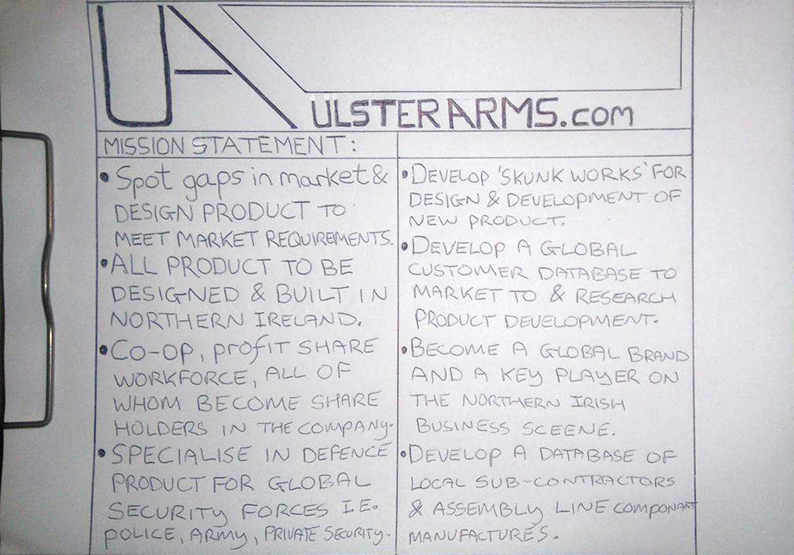 UA
ULSTER ARMS.com
MISSION STATEMENT:
• Spot gaps in market &
DESIGN PRODUCT TO
MEET MARKET REQUIREMENTS.
• ALL PRODUCT TO BE
DESIGNED & BUILT IN
NORTHERN IRELAND.
• Co-op, profit SHARE
WORKFORCE, ALL OF
WHOM BECOME SHARE
HOLDERS IN THE COMPANY.
• SPECIALISE IN DEFENCE
PRODUCT FOR GLOBAL
SECURITY FORCES I.E.
POLICE, ARMY, PRIVATE SECURITY.
• DEVELOP 'SKUNK WORKS' FOR
DESIGN & DEVELOPMENT OF
NEW PRODUCT.
• DEVELOP A GLOBAL
CUSTOMER DATABASE TO
MARKET TO & RESEARCH
PRODUCT DEVELOPMENT.
• BECOME A GLOBAL BRAND
AND A KEY PLAYER ON
THE NORTHERN IRISH
BUSINESS SCEENE.
• DEVELOP A DATABASE OF
LOCAL SUB-CONTRACTORS
& ASSEMBLY LINE COMPONANT
MANUFACTURES.